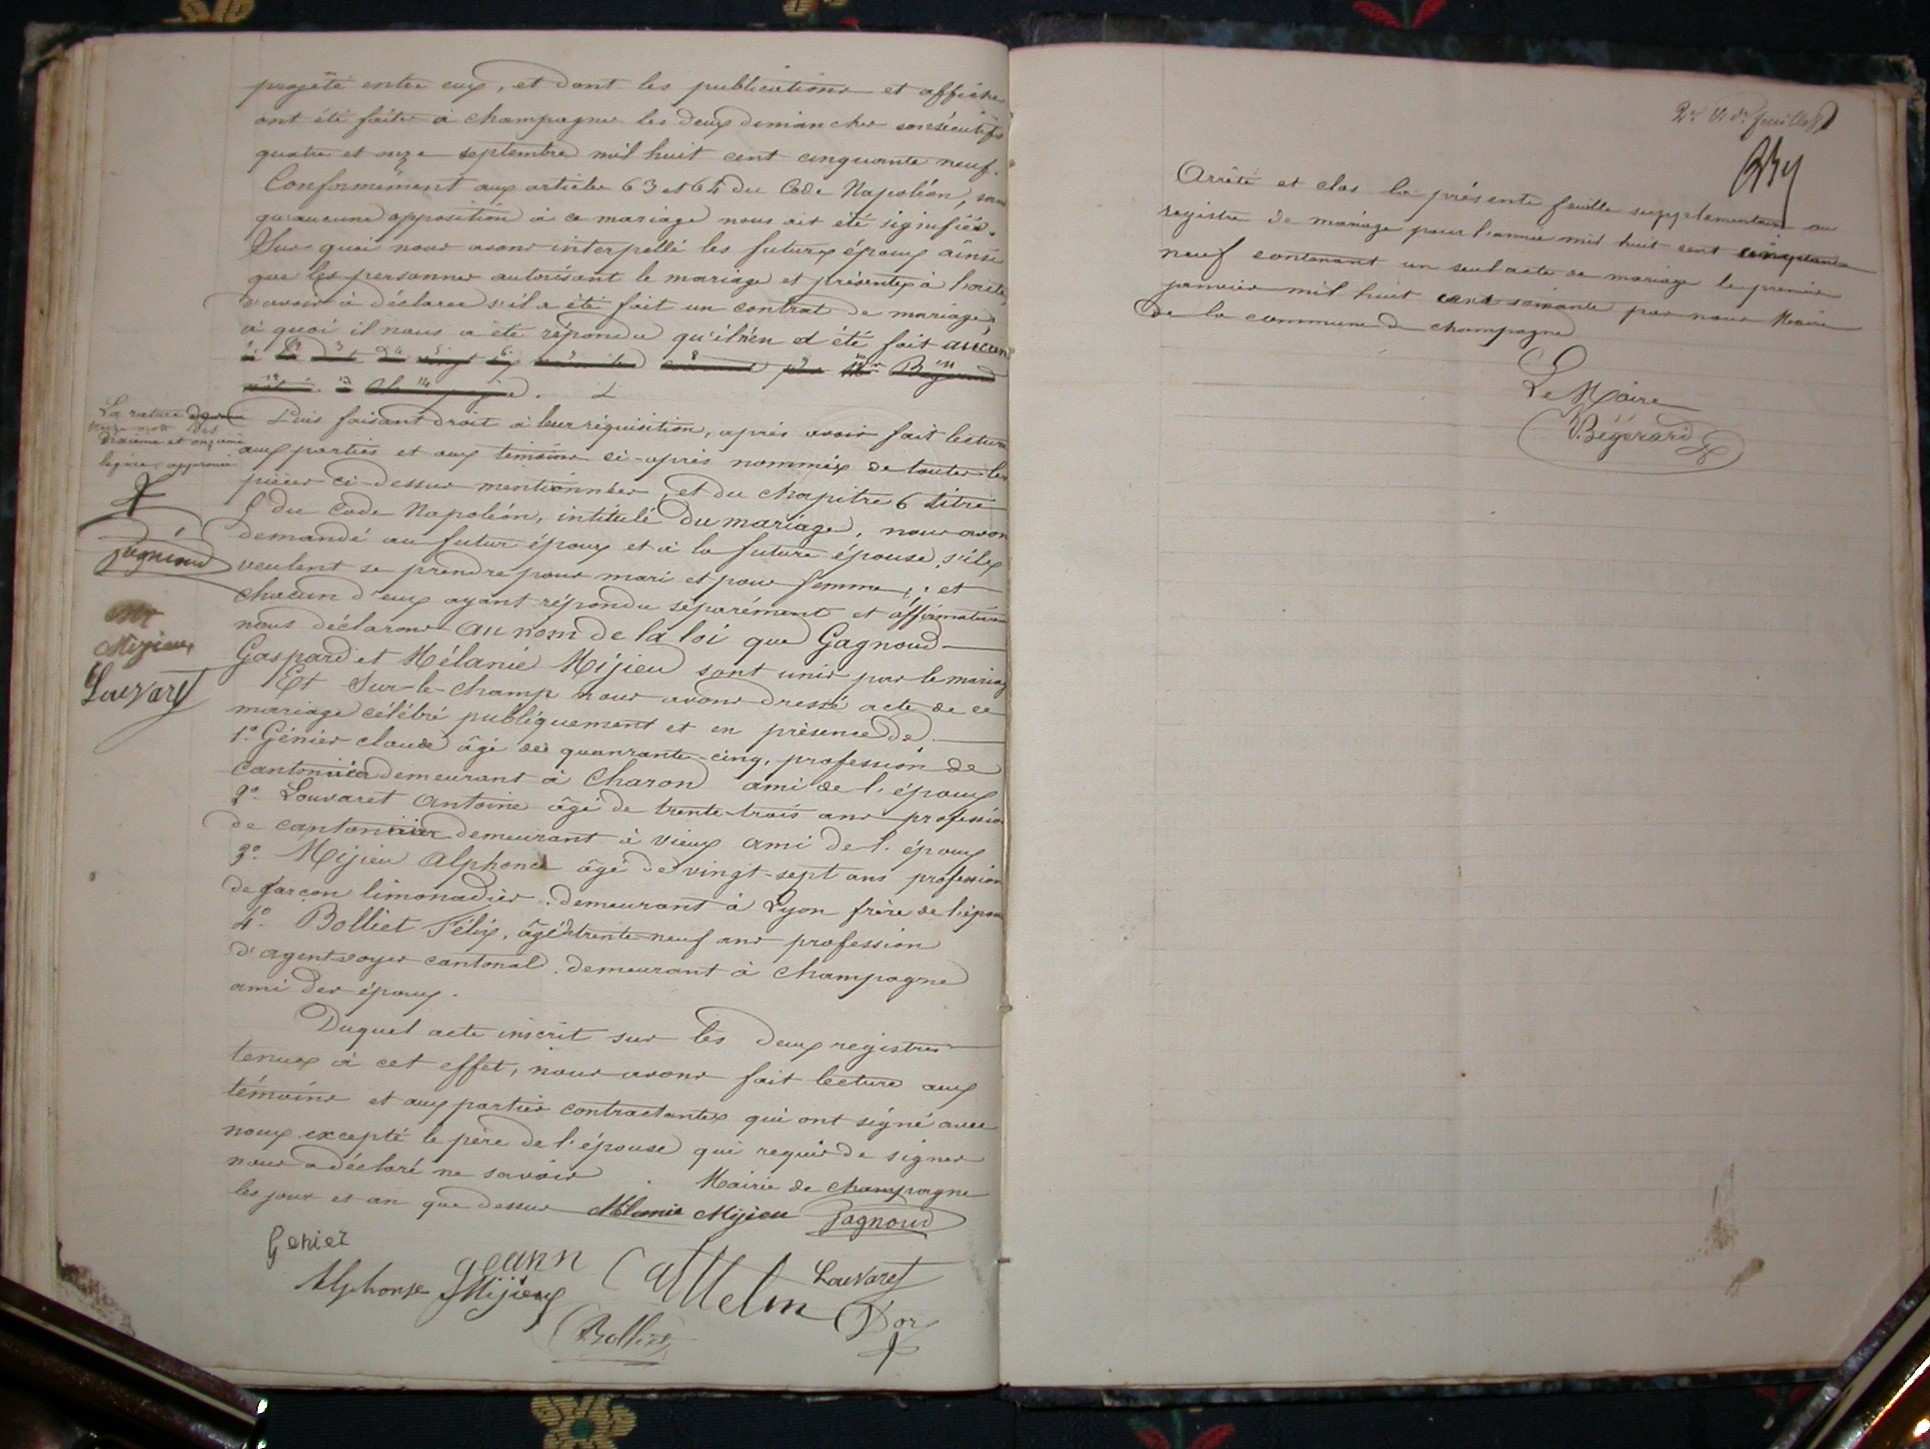 projêté entre eux, et dont les publications et affiches
ont été faites à champagne les deux dimanches consécutifs
quatre et onze septembre mil huit cent cinquante neuf.
Conformément aux articles 63 et 64 du Code Napoléon, sans
qu'aucune opposition à ce mariage nous ait été signifiée.
Sur quoi nous avons interpellé les futurs époux ainsi
que les personnes autorisant le mariage et présentes à l'acte
d'avoir à déclarer s'il a été fait un contrat de mariage,
à quoi il nous a été répondu qu'il n'en et été fait aucun
Puis faisant droit à leur réquisition, après avoir fait lecture
aux parties et aux témoins ci-après nommés de toutes les
pièces ci-dessus mentionnées, et du chapitre 6 titre
5 du Code Napoléon, intitulé Du mariage, nous avons
demandé au futur époux et à la future épouse, s'ils
veulent se prendre pour mari et pour femme, et
chacun d'eux ayant répondu séparément et affirmativem
nous déclarons au nom de la loi que Gagnoud
Gaspard et Mélanie Mijieu sont unis par le mariag
Et Sur-le-champ nous avons dressé acte de ce
mariage célébré publiquement et en présence de
1.º Génier claude âgé de quanrante-cinq, profession de
cantonnier demeurant à Charon ami de l'époux
2º. Louvaret Antoine âgé de trente-trois ans profession
de cantonnier demeurant à vieux ami de l'époux
3º. Mijieu Alphonce âgé de vingt-sept ans profession
de garçon limonadier demeurant à Lyon frère de l'épou
4º. Bolliet Félix, âgé trente-neuf ans profession
d'agent voyer cantonal demeurant à Champagne
ami des époux.
Duquel acte inscrit sur les deux registres
tenus à cet effet, nous avons fait lecture aux
témoins et aux parties contractantes qui ont signé avec
nous excepté le père de l'épouse qui requis de signer
nous a déclaré ne savoir. Mairie de champagne
les jour et an que dessus Mélanie Mijieu Gagnoud
Genier
Jeann Cattelin Louvaret
Alphonse Mijieu D'or
Bolliet
La rature
dixième et onzième
ligne, approuvée
Gagnoud
Mr
Mijieux
Louvaret
Arrêté et clos la présente feuille supplementaire au
registre de mariage pour l'année mil huit cent cinquante
neuf contenant un seul acte de mariage le premier
janvier mil huit cent soixante par nous Maire
de la commune de champagne
Le Maire
Bégérard